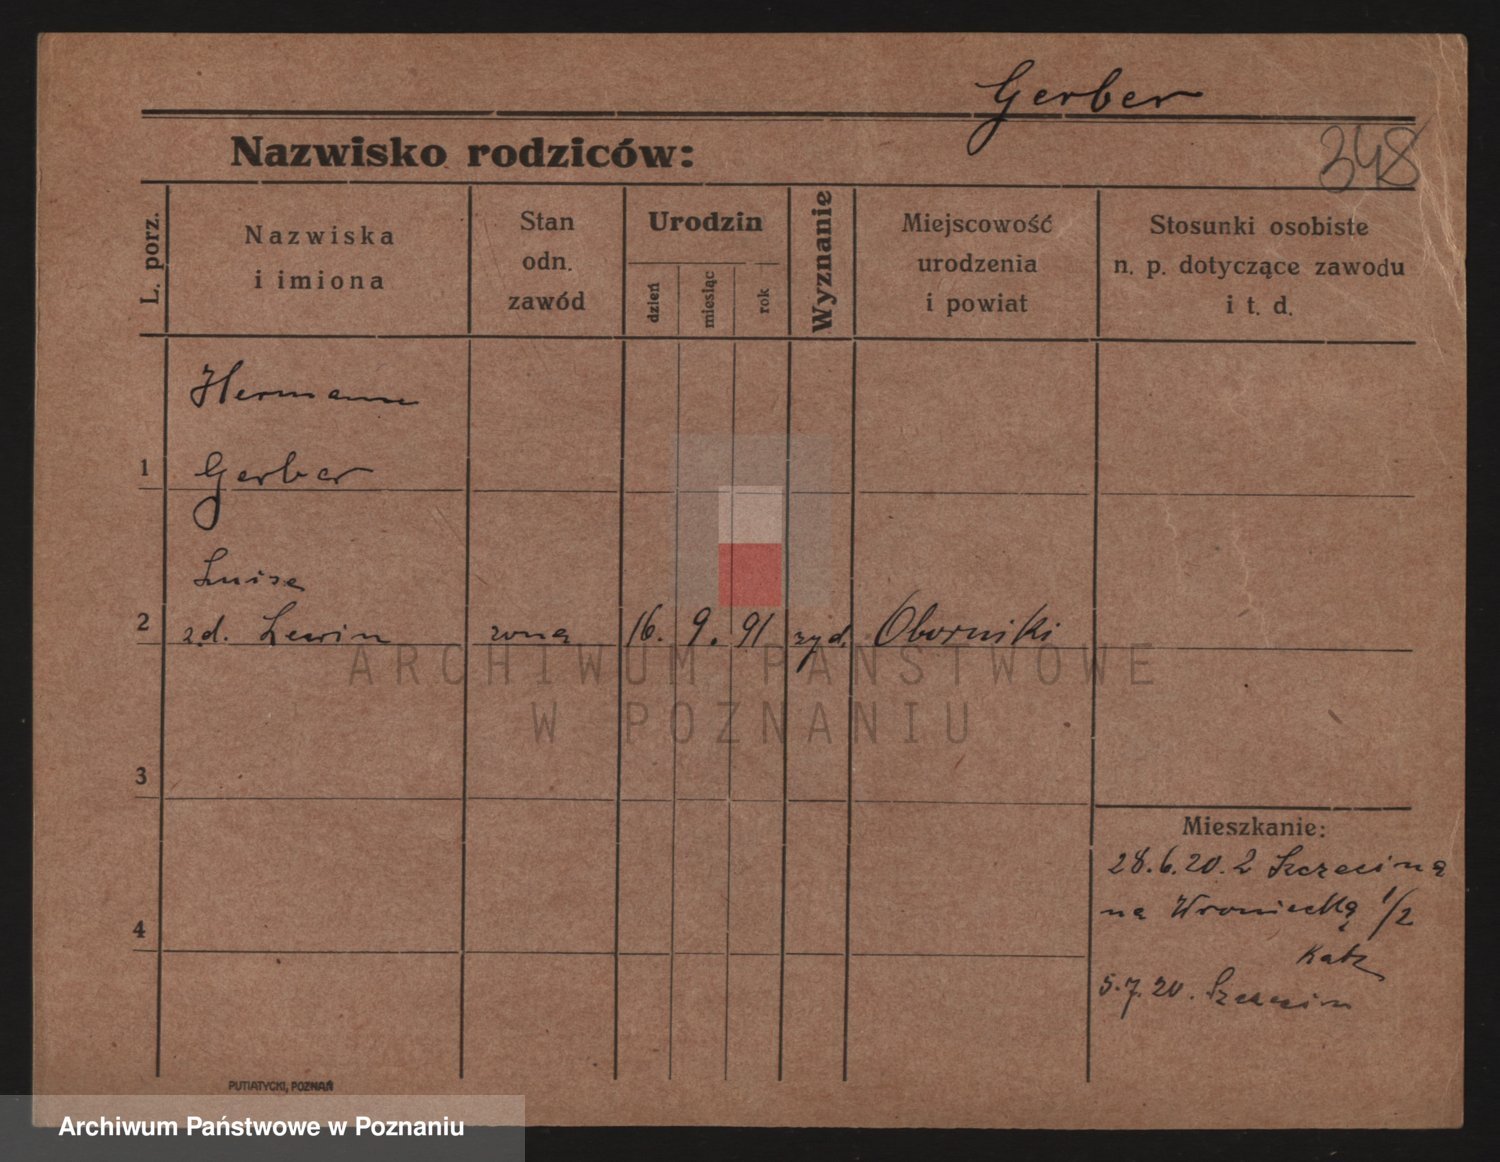 Gerber
348
Nazwisko rodziców:
L. porz.
Nazwiska
i imiona
Stan
odn.
zawód
Urodzin
dzień
miesiąc
rok
Wyznanie
Miejscowość
urodzenia
i powiat
Stosunki osobiste
n. p. dotyczące zawodu
i t. d.
Hermann
1 Gerber
Luise
2 z.d. Lewin żona 16. 9. 91 żyd. Oborniki
ARCHIWUM PAŃSTWOWE
W POZNANIU
3
4
Mieszkanie:
28.6.20. z Szczecina
na Wroniecką 1/2
Katz
5.7.20. Szczecin
PUTIATYCKI, POZNAŃ
Archiwum Państwowe w Poznaniu